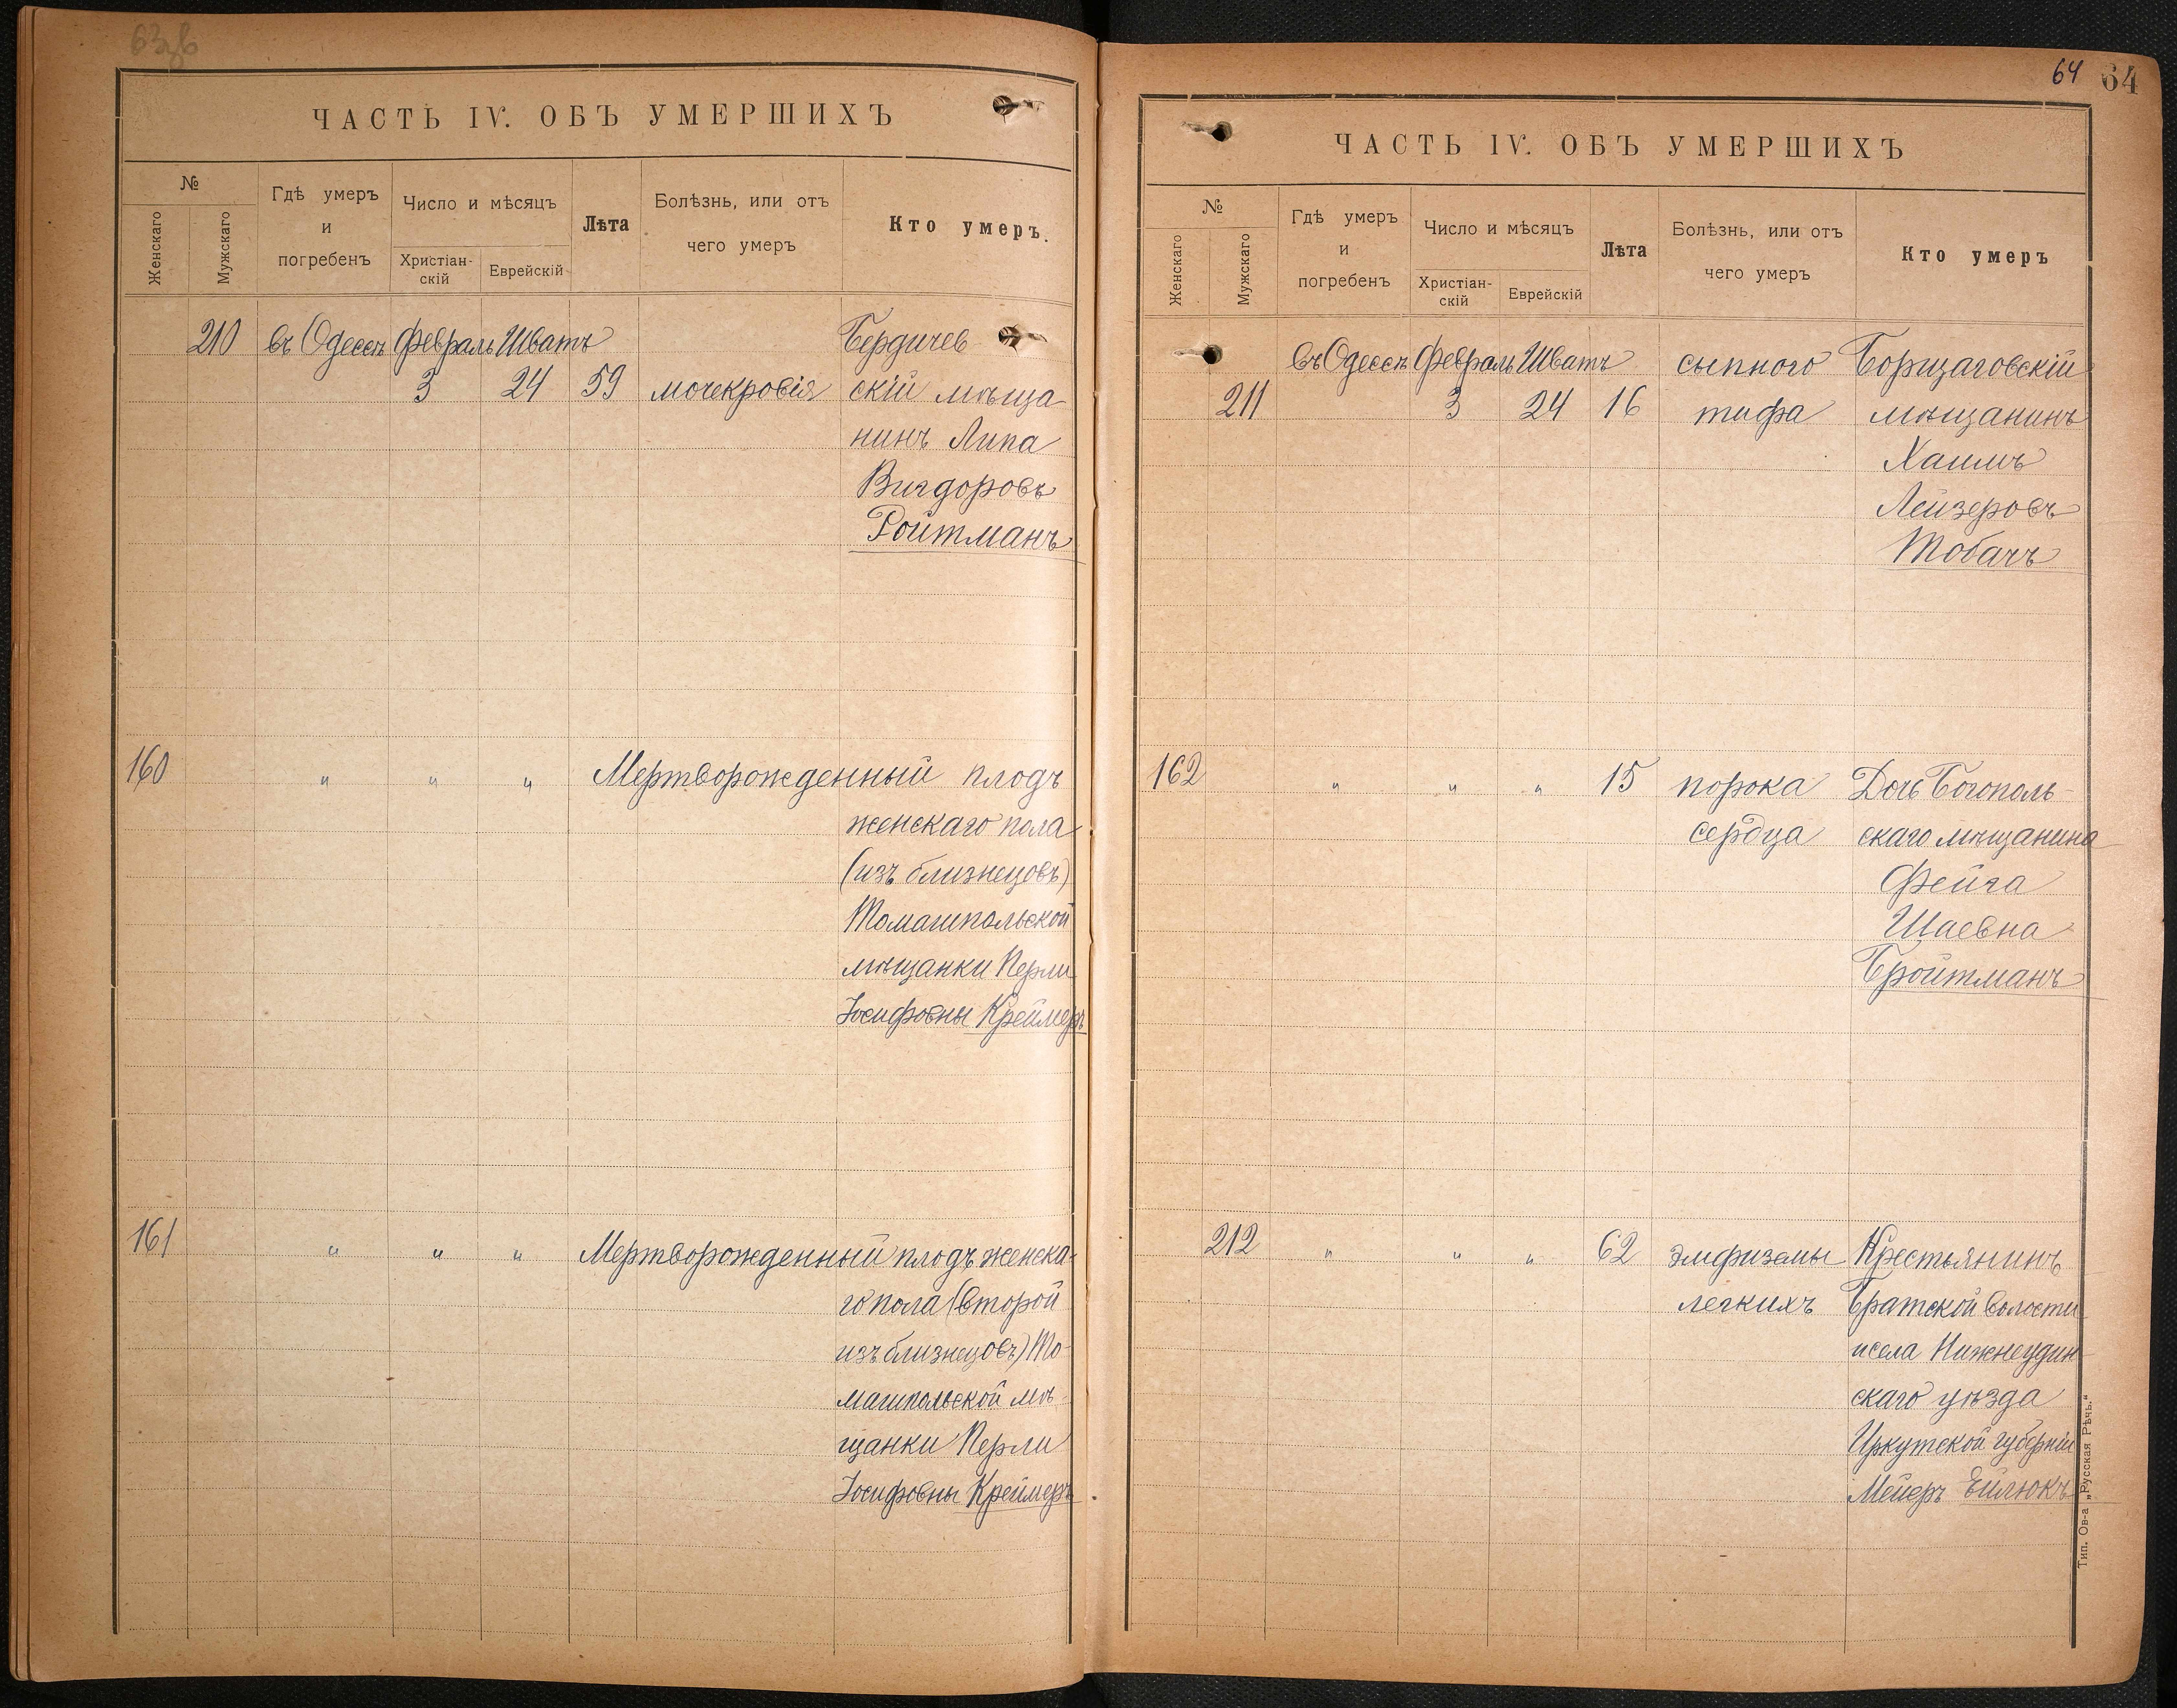 63об
ЧАСТЬ IV. ОБЪ УМЕРШИХЪ
№
Женскаго
Мужскаго
Гдѣ умеръ
и
погребенъ
Число и мѣсяцъ
Христіан-
скій
Еврейскій
Лѣта
Болѣзнь, или отъ
чего умеръ
Кто умеръ.
210 въ Одессѣ Февраль Шватъ Бердичев
3 24 59 мочекровія скій мѣща-
нинъ Липа
Вигдоровъ
Ройтманъ
160 " " " Мертворожденный плодъ
женскаго пола
(изъ близнецовъ)
Томашпольской
мѣщанки Перли
Іосифовны Креймеръ
161 " " " Мертворожденный плодъ женска-
го пола (второй
изъ близнецовъ) То-
машпольской мѣ-
щанки Перли
Іосифовны Креймеръ
64 64
ЧАСТЬ IV. ОБЪ УМЕРШИХЪ
№
Женскаго
Мужскаго
Гдѣ умеръ
и
погребенъ
Число и мѣсяцъ
Христіан-
скій
Еврейскій
Лѣта
Болѣзнь, или отъ
чего умеръ
Кто умеръ
въ Одессѣ Февраль Шватъ сыпного Борщаговскій
211 3 24 16 тифа мѣщанинъ
Хаимъ
Лейзеровъ
Тобачъ
162 " " " 15 порока Дочь Богополь-
сердца скаго мѣщанина
Фейга
Шаевна
Бройтманъ
212 " " " 62 эмфиземы Крестьянинъ
легкихъ Братской волости
и села Нижнеудин
скаго уѣзда
Иркутской губерніи
Мейеръ Ейлюкъ
Тип. Ов-а „Русская Рѣчь.“